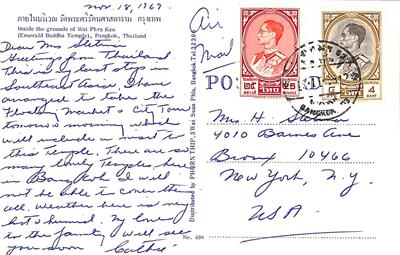 Nov. 18, 1969
ภายในบริเวณ วัดพระศรีรัตนศาสดาราม กรุงเทพ
Inside the grounds of Wat Phra Keo
(Emerald Buddha Temple), Bangkok, Thailand
Dear Mrs
Greetings from Thailand
This is my last stop in
Southeast Asia. I have
arranged to take the
Floating Market & City Tour
tomorrow morning which
will include a visit to
this Temple. There are so
many lovely Temples here
in Bangkok I will
not be able to cover them
all. Weather here is very
hot & humid. My love
to the family. Will see
you soon
Cathie
Distributed by PHORNTHIP, 3 Wat Saan Phlu, Bangkok Tel.
No.
Air
Mail
PO
BANGKOK
Mrs H
4010 Barnes Ave
Bronx 10466
New York, N.Y.
USA